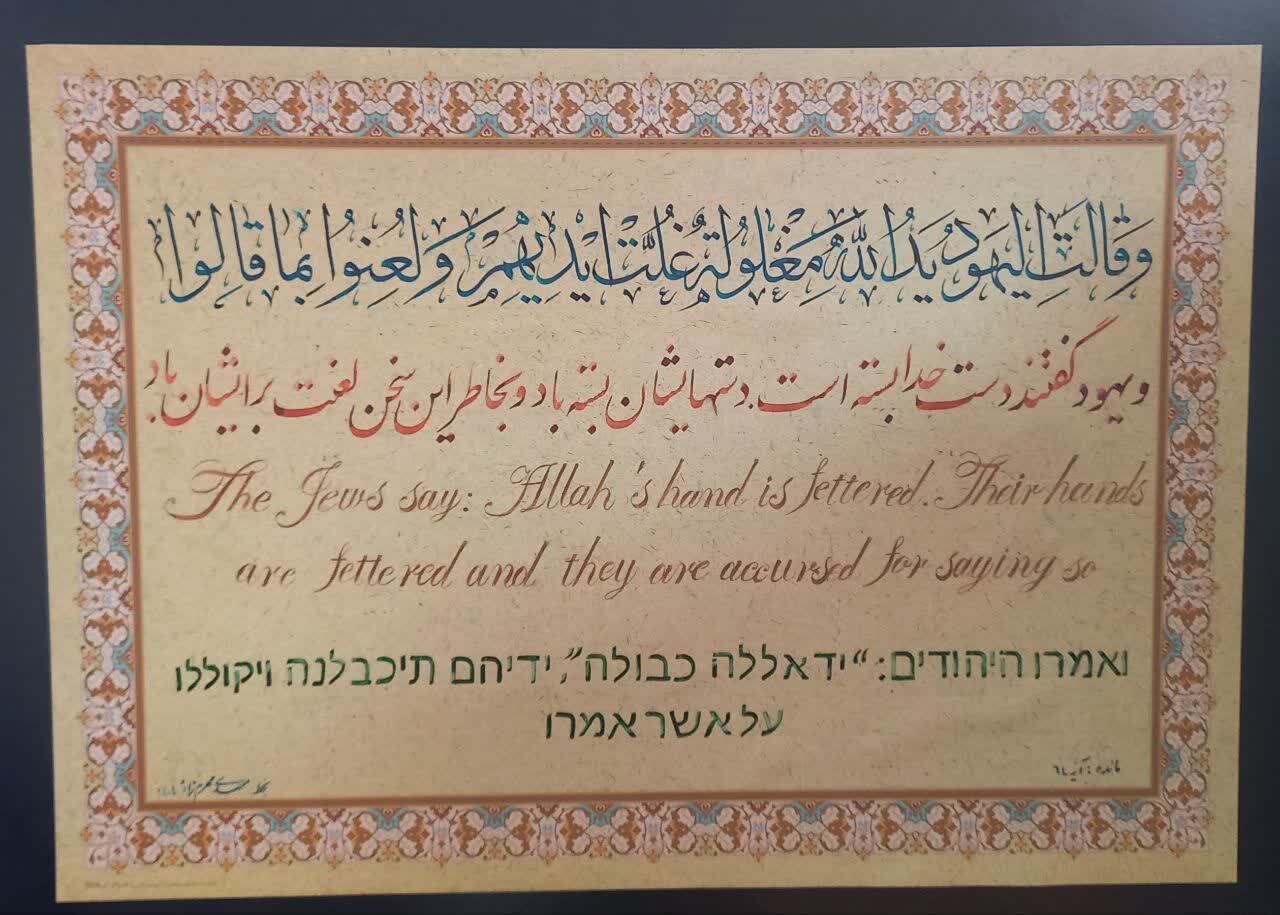 وَقَالَتِ الْیَهودُ یَدُ اللّٰهِ مَغْلُولَةٌ غُلَّتْ اَیْدِیْهِمْ وَ لُعِنُوا بِمَا قَالُوا
و یهود گفتند دست خدا بسته است. دستهایشان بسته باد و بخاطر این سخن لعنت برایشان باد.
The Jews say: Allah 's hand is fettered. Their hands
are fettered and they are accursed for saying so
ואמרו היהודים: “יד אללה כבולה”, ידיהם תיכבלנה ויקוללו
על אשר אמרו
مائده : آیه ٦٤